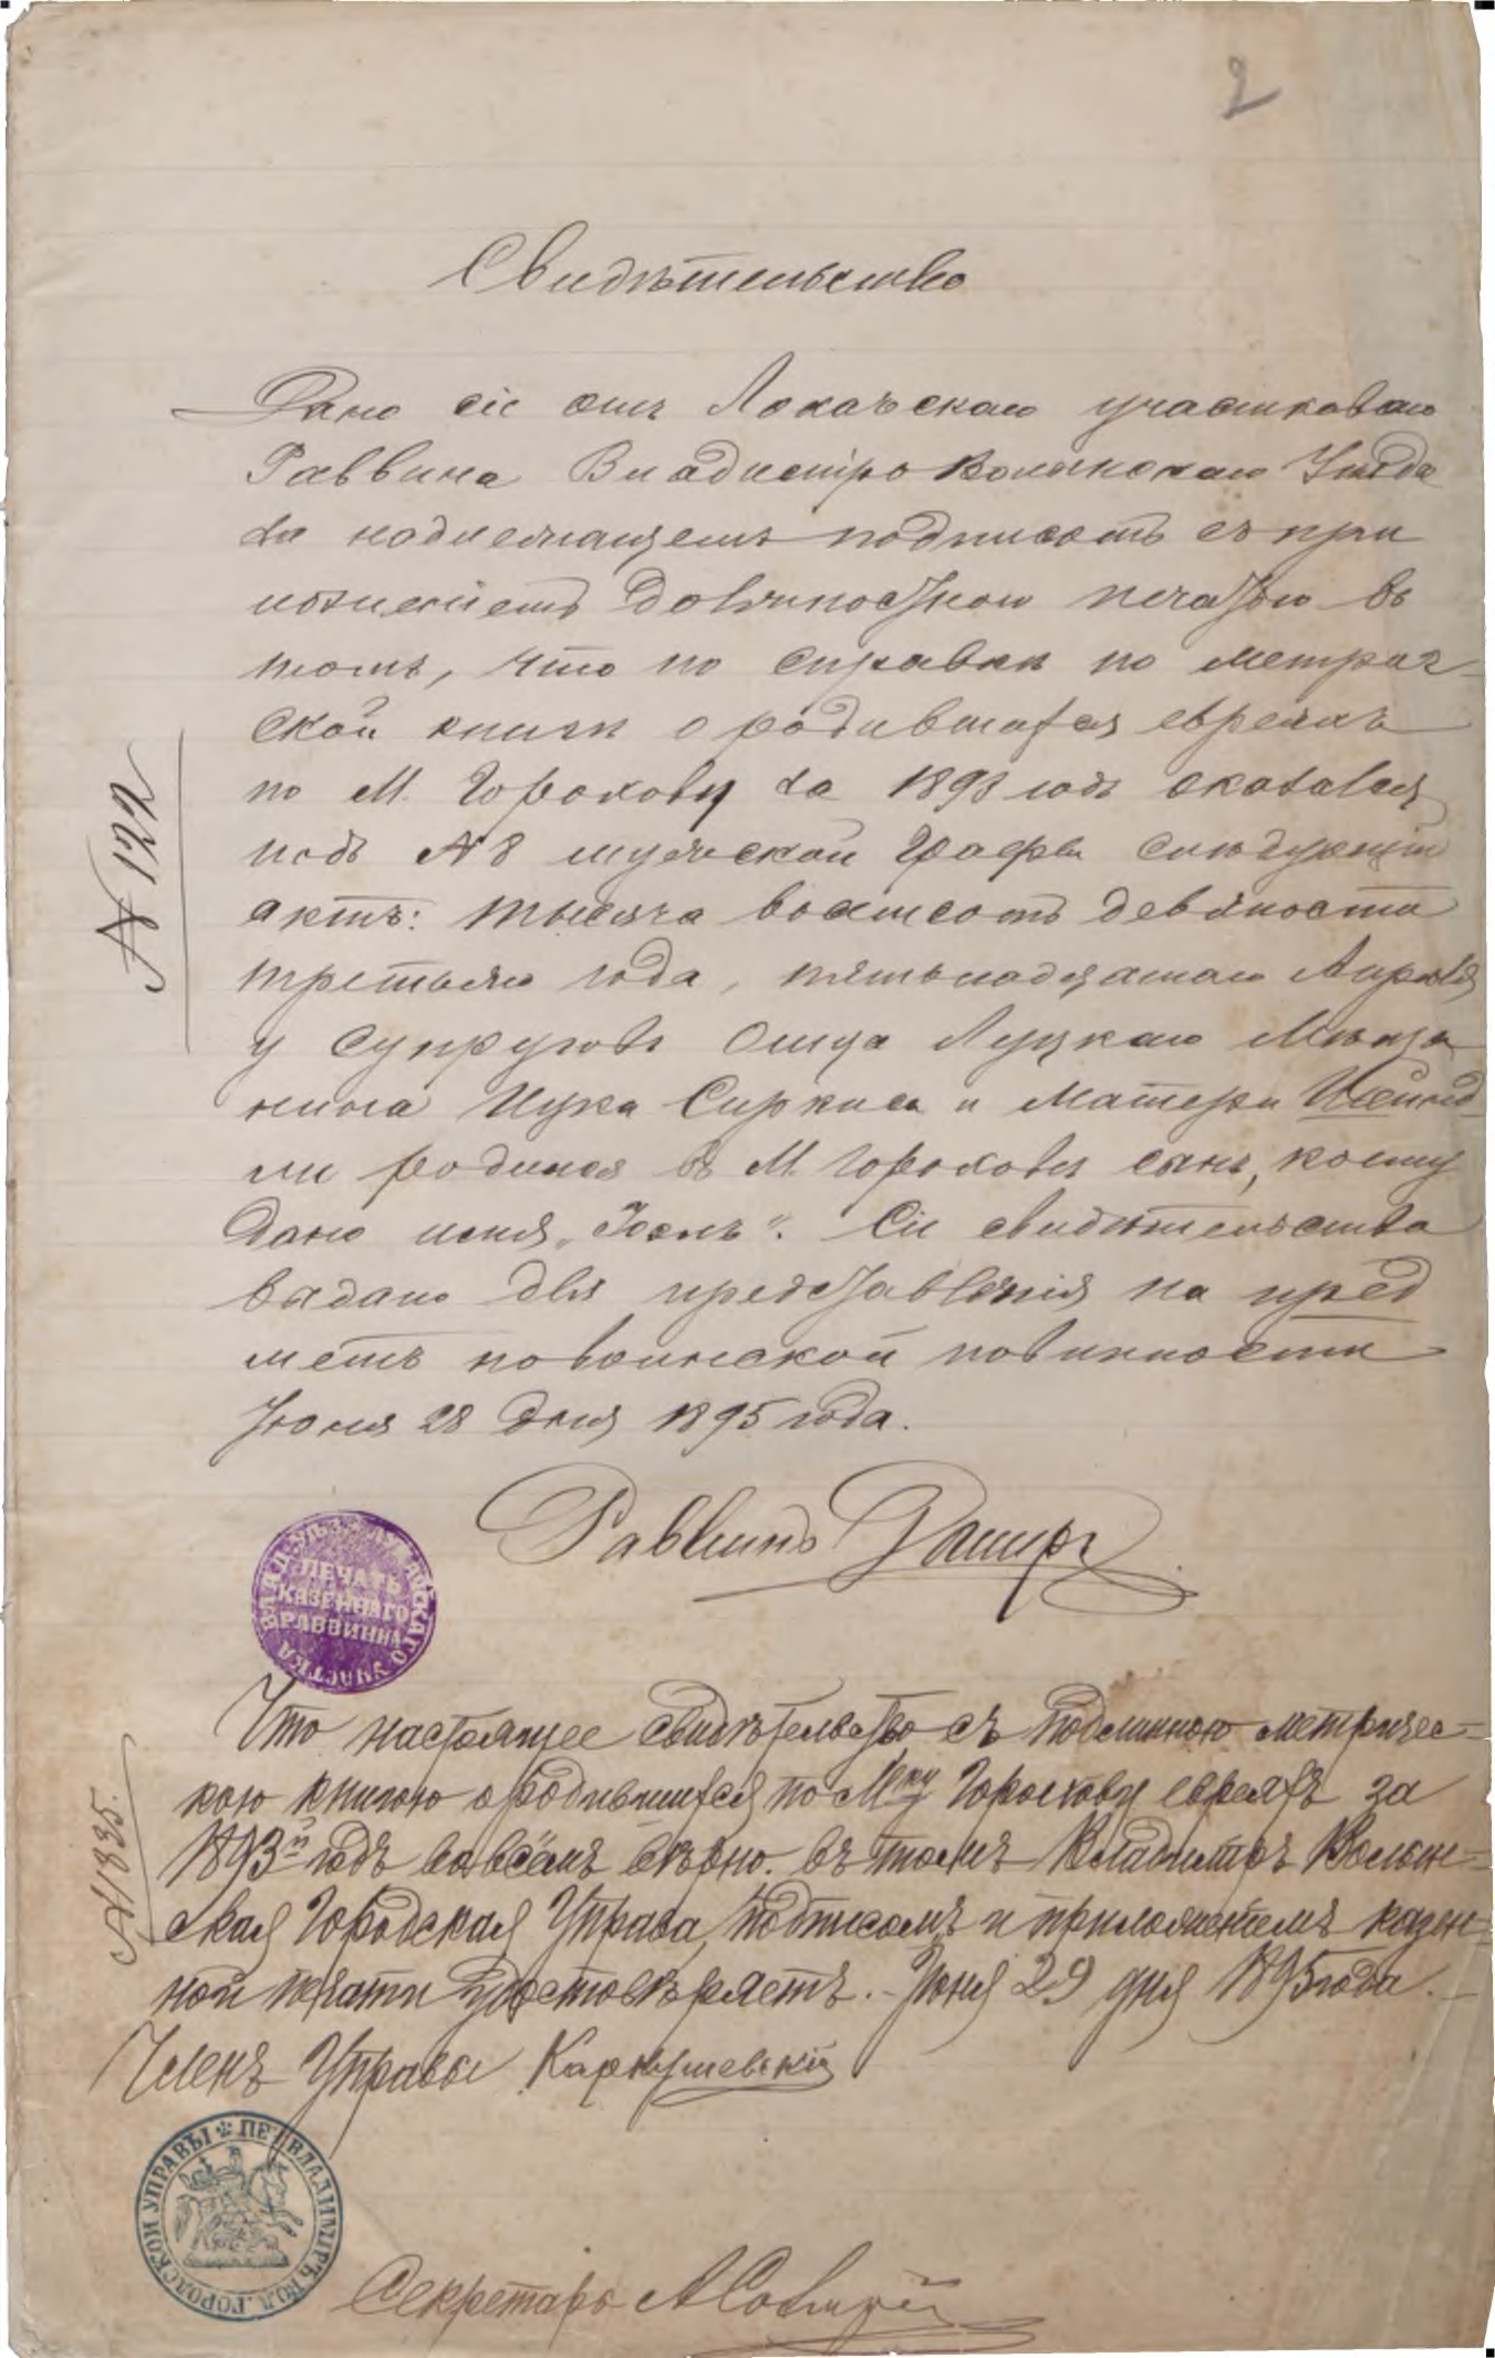 2
Свидѣтельство
Дано сіе отъ Локачскаго участковаго
Раввина Владиміро Волынскаго Уѣзда
за надлежащемъ подписомъ съ при
ложеніемъ должностной печатью въ
томъ, что по справки по метрич-
ской книги о родившихся евреяхъ
по М. Горохову за 1893 годъ оказался
подъ № 8 мужеской графы слѣдующій
актъ: тысяча восемсотъ девяносто
третьяго года, пятьнадцатаго Апрѣля
у супруговъ Отца Луцкаго Мѣща
нина Ицка Сиркиса и Матери
ли родился въ М. Гороховѣ сынъ, коему
дано имя „Хаимъ“. Сіе свидѣтельства
выдано для представленія на пред
метъ по воинской повинности
Іюня 28 дня 1895 года.
Раввинъ
№ 122
ПЕЧАТЬ
КАЗЕННАГО
РАВВИНА
Что настоящее свидѣтельство съ подлинною метричес-
кою книгою о родившихся по Мку Горохову евреяхъ за
1893й годъ во всёмъ вѣрно. въ томъ Владиміръ Волын-
ская Городская Управа, подписомъ и приложеніемъ казен-
ной печати удостовѣряетъ. - Іюня 29 дня 1895 года. -
№ 1835.
Членъ Управы
ВЛАДИМІРЪ ВОЛ. ГОРОДСКОЙ УПРАВЫ
Секретарь